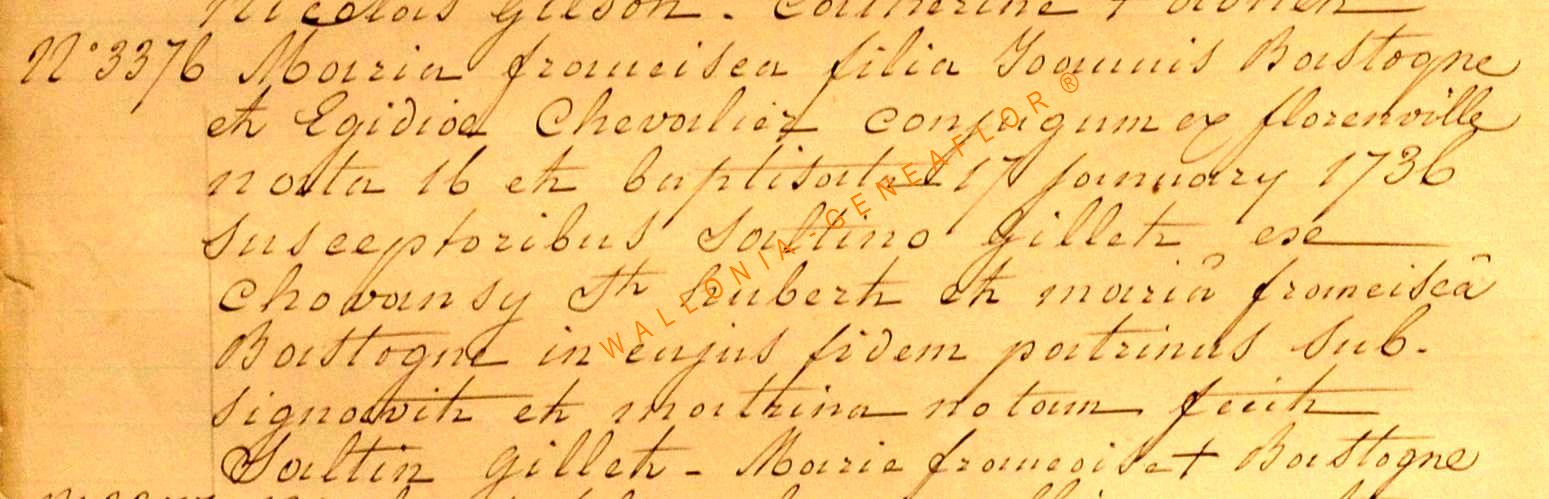 Nicolas Gilson - Catherine +
N° 3376 Maria francisca filia Joannis Bastogne
et Egidiae Chevalier conjugum ex florenville
nata 16 et baptisata 17 january 1736
susceptoribus Saltino Gillet ex
Chovansy St hubert et mariâ franciscâ
Bastogne in cujus fidem patrinus sub-
signavit et matrina notam fecit
Saltin Gillet - Marie francoise + Bastogne
WALLONIA-GENEAFLOR ®